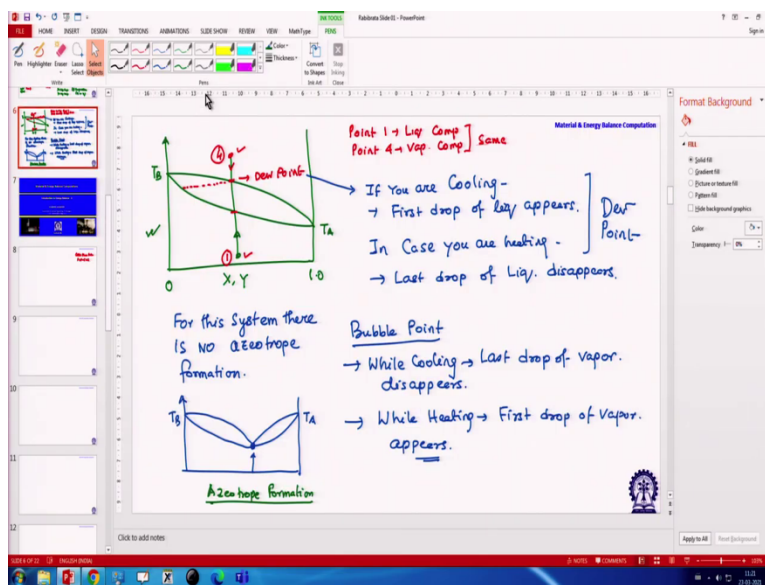 INK TOOLS
Rabibrata Slide 01 - PowerPoint
FILE HOME INSERT DESIGN TRANSITIONS ANIMATIONS SLIDE SHOW REVIEW VIEW MathType PENS
Sign in
Pen Highlighter Eraser Lasso Select Select Objects
Color
Thickness
Convert to Shapes
Stop Inking
Write Pens Ink Art Close
Material & Energy Balance Computation
Point 1 → Liq Comp
Point 4 → Vap. Comp
Same
4
TB
Dew Point
TA
1
0 X, Y 1.0
If You are Cooling -
→ First drop of liq appears.
In Case you are heating -
→ Last drop of Liq. disappears.
Dew Point
For this System there
IS NO azeotrope
formation.
TB TA
Azeotrope Formation
Bubble Point
→ While Cooling → Last drop of vapor.
disappears.
→ While Heating → First drop of vapor.
appears.
Format Background
FILL
Solid fill
Gradient fill
Picture or texture fill
Pattern fill
Hide background graphics
Color
Transparency 0%
Apply to All Reset Background
6
7
8
9
10
11
12
Click to add notes
SLIDE 6 OF 22 ENGLISH (INDIA) NOTES COMMENTS 103%
11:21
23-03-2021